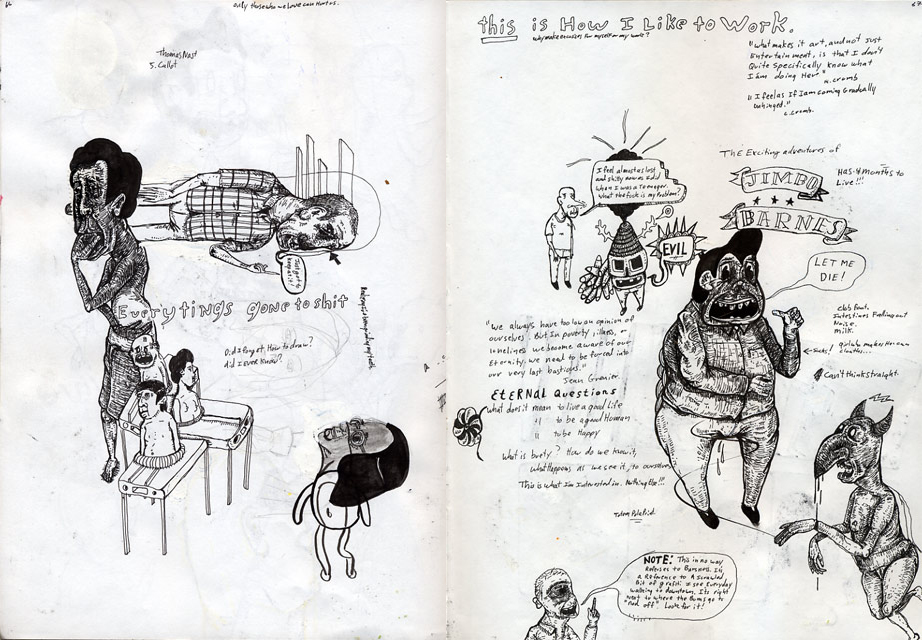 only those who we love can Hurt us.
Thomas Nast
S. Callot
Everytings gone to shit
Did i forget How to draw?
did I ever Know?
67
this is How I Like to Work.
why make excuses for myself or my work?
"what makes it art, and not just
Entertainment, is that I don't
Quite Specifically Know what
I am doing Here"
R. crumb
"I feel as If I am coming Gradually
unhinged."
R. crumb.
I feel almost as lost
and shitty now as I did
When I was a Teenager.
What the fuck is my Problem?
EVIL
THE Exciting adventures of
JIMBO
BARNES
Has 4 months to
Live!!!
LET ME
DIE!
club foot.
Intestines Falling out
Noise.
milk.
Can't think straight.
"We always have too low an opinion of
ourselves. But In poverty, illness, or
loneliness we become aware of our
Eternity. we need to be forced into
our very last bastions."
Jean Grenier
ETERNAL Questions
what does it mean to live a good life
" to be a good Human
" to be Happy
What is buety? How do we know it,
what Happens as we see it, to ourselves
This is what I'm Interested in. Nothing Else!!!
NOTE: This in no way
Referes to Barsness. It's
a Reference to a Scrawled
Bit of grafiti I see Everyday
walking to downtown. Its right
next to where the Bums go to
"nod off". Look for it!